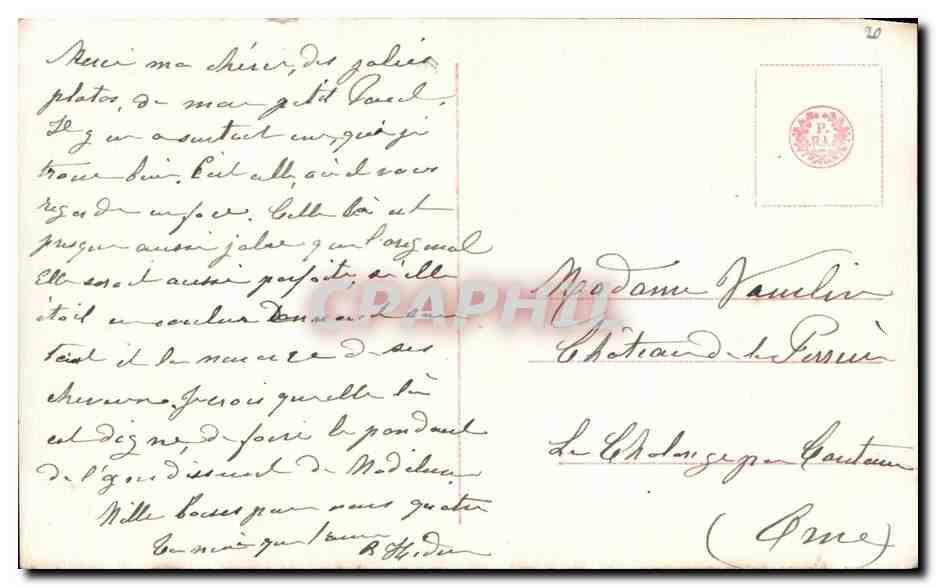 Merci ma chérie, des jolies
photos, de mon petit
Il y en a surtout une, que je
trouve bien. C'est celle, où il nous
regarde en face. Celle là est
presque aussi jolie que l'original
Elle serait aussi parfaite, si elle
était en couleur Donnant son
teint et la nuance de ses
cheveux. Je crois qu'elle là
est digne, de faire le pendant
de l'agrandissement de Madeleine
Mille baisers pour vous quatre
Ta mère qui t'aime
20
P.
R.
CPAPHIL
Madame
Château de la
Le Chalange par Courtomer
(Orne)